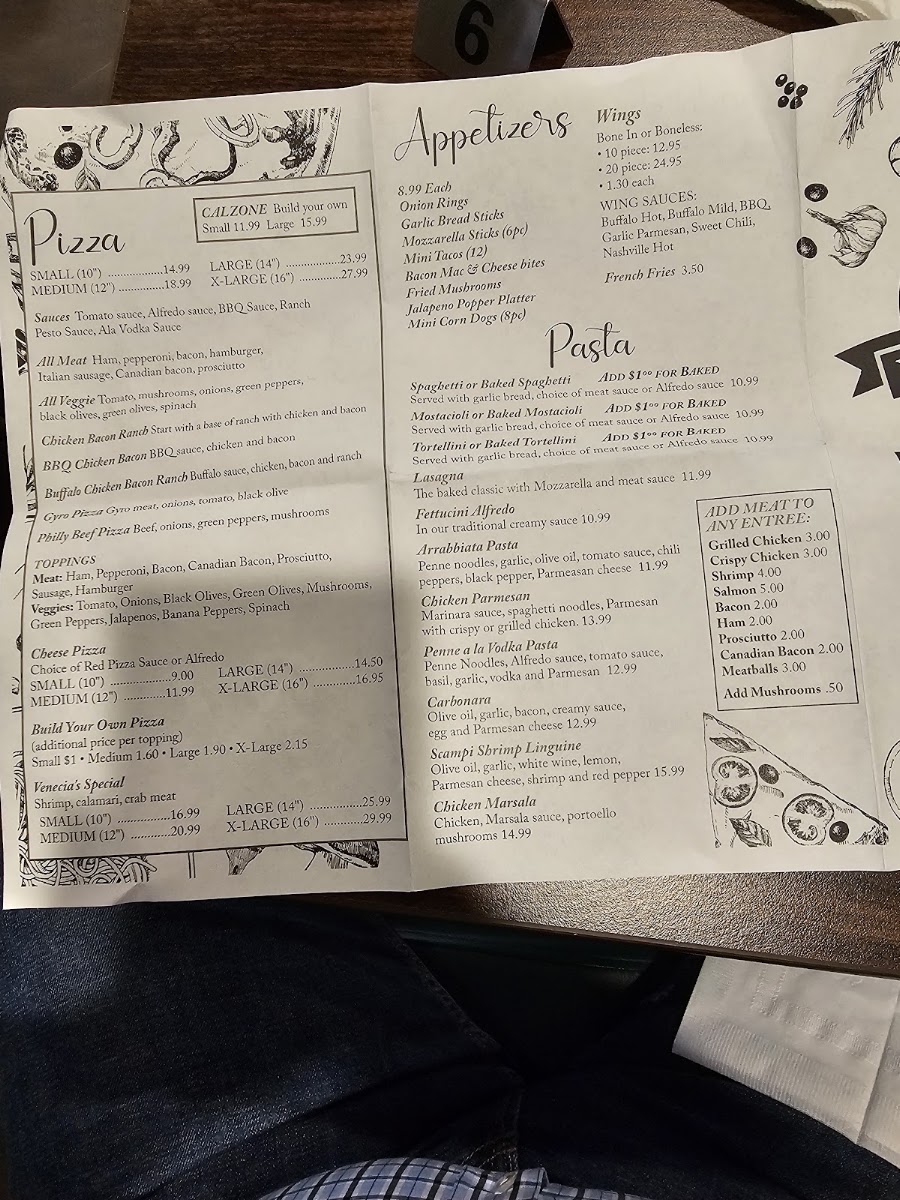 6
Pizza
CALZONE Build your own
Small 11.99 Large 15.99
SMALL (10") ....................14.99
LARGE (14") ....................23.99
MEDIUM (12") ................18.99
X-LARGE (16") ................27.99
Sauces Tomato sauce, Alfredo sauce, BBQ Sauce, Ranch
Pesto Sauce, Ala Vodka Sauce
All Meat Ham, pepperoni, bacon, hamburger,
Italian sausage, Canadian bacon, prosciutto
All Veggie Tomato, mushrooms, onions, green peppers,
black olives, green olives, spinach
Chicken Bacon Ranch Start with a base of ranch with chicken and bacon
BBQ Chicken Bacon BBQ sauce, chicken and bacon
Buffalo Chicken Bacon Ranch Buffalo sauce, chicken, bacon and ranch
Gyro Pizza Gyro meat, onions, tomato, black olive
Philly Beef Pizza Beef, onions, green peppers, mushrooms
TOPPINGS
Meat: Ham, Pepperoni, Bacon, Canadian Bacon, Prosciutto,
Sausage, Hamburger
Veggies: Tomato, Onions, Black Olives, Green Olives, Mushrooms,
Green Peppers, Jalapenos, Banana Peppers, Spinach
Cheese Pizza
Choice of Red Pizza Sauce or Alfredo
SMALL (10") ....................9.00
LARGE (14") ....................14.50
MEDIUM (12") ..............11.99
X-LARGE (16") ............16.95
Build Your Own Pizza
(additional price per topping)
Small $1 • Medium 1.60 • Large 1.90 • X-Large 2.15
Venecia's Special
Shrimp, calamari, crab meat
SMALL (10") ..................16.99
LARGE (14") ....................25.99
MEDIUM (12") .............20.99
X-LARGE (16") ..............29.99
Appetizers
8.99 Each
Onion Rings
Garlic Bread Sticks
Mozzarella Sticks (6pc)
Mini Tacos (12)
Bacon Mac & Cheese bites
Fried Mushrooms
Jalapeno Popper Platter
Mini Corn Dogs (8pc)
Wings
Bone In or Boneless:
• 10 piece: 12.95
• 20 piece: 24.95
• 1.30 each
WING SAUCES:
Buffalo Hot, Buffalo Mild, BBQ,
Garlic Parmesan, Sweet Chili,
Nashville Hot
French Fries 3.50
Pasta
Spaghetti or Baked Spaghetti ADD $1⁰⁰ FOR BAKED
Served with garlic bread, choice of meat sauce or Alfredo sauce 10.99
Mostacioli or Baked Mostacioli ADD $1⁰⁰ FOR BAKED
Served with garlic bread, choice of meat sauce or Alfredo sauce 10.99
Tortellini or Baked Tortellini ADD $1⁰⁰ FOR BAKED
Served with garlic bread, choice of meat sauce or Alfredo sauce 10.99
Lasagna
The baked classic with Mozzarella and meat sauce 11.99
Fettucini Alfredo
In our traditional creamy sauce 10.99
Arrabbiata Pasta
Penne noodles, garlic, olive oil, tomato sauce, chili
peppers, black pepper, Parmeasan cheese 11.99
Chicken Parmesan
Marinara sauce, spaghetti noodles, Parmesan
with crispy or grilled chicken. 13.99
Penne a la Vodka Pasta
Penne Noodles, Alfredo sauce, tomato sauce,
basil, garlic, vodka and Parmesan 12.99
Carbonara
Olive oil, garlic, bacon, creamy sauce,
egg and Parmesan cheese 12.99
Scampi Shrimp Linguine
Olive oil, garlic, white wine, lemon,
Parmesan cheese, shrimp and red pepper 15.99
Chicken Marsala
Chicken, Marsala sauce, portoello
mushrooms 14.99
ADD MEAT TO
ANY ENTREE:
Grilled Chicken 3.00
Crispy Chicken 3.00
Shrimp 4.00
Salmon 5.00
Bacon 2.00
Ham 2.00
Prosciutto 2.00
Canadian Bacon 2.00
Meatballs 3.00
Add Mushrooms .50